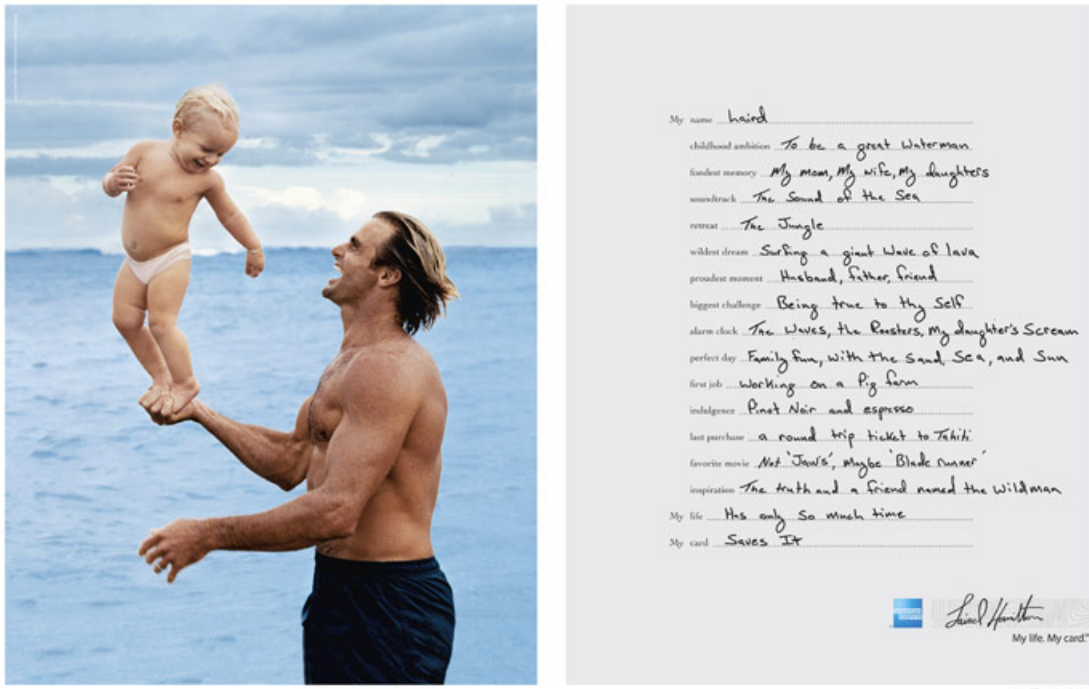 My name Laird
childhood ambition To be a great Waterman
fondest memory My mom, My wife, My daughters
soundtrack The Sound of the Sea
retreat The Jungle
wildest dream Surfing a giant Wave of lava
proudest moment Husband, father, friend
biggest challenge Being true to thy Self
alarm clock The Waves, the Roosters, My daughter's Scream
perfect day Family fun, with the Sand, Sea, and Sun
first job Working on a Pig farm
indulgence Pinot Noir and espresso
last purchase a round trip ticket to Tahiti
favorite movie Not 'Jaws', Maybe 'Blade runner'
inspiration The truth and a friend named the Wildman
My life Has only So much time
My card Saves It
Laird Hamilton
My life. My card.™